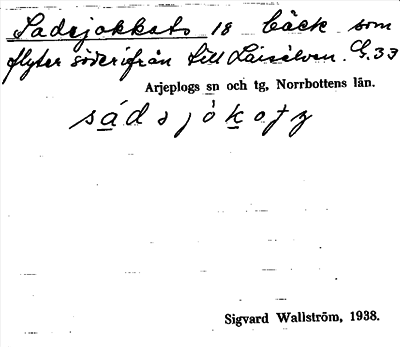 Sadsjokkats 18 bäck som
flyter söderifrån till Laisälven. G.33
Arjeplogs sn och tg, Norrbottens län.
sádsjòkotz
Sigvard Wallström, 1938.